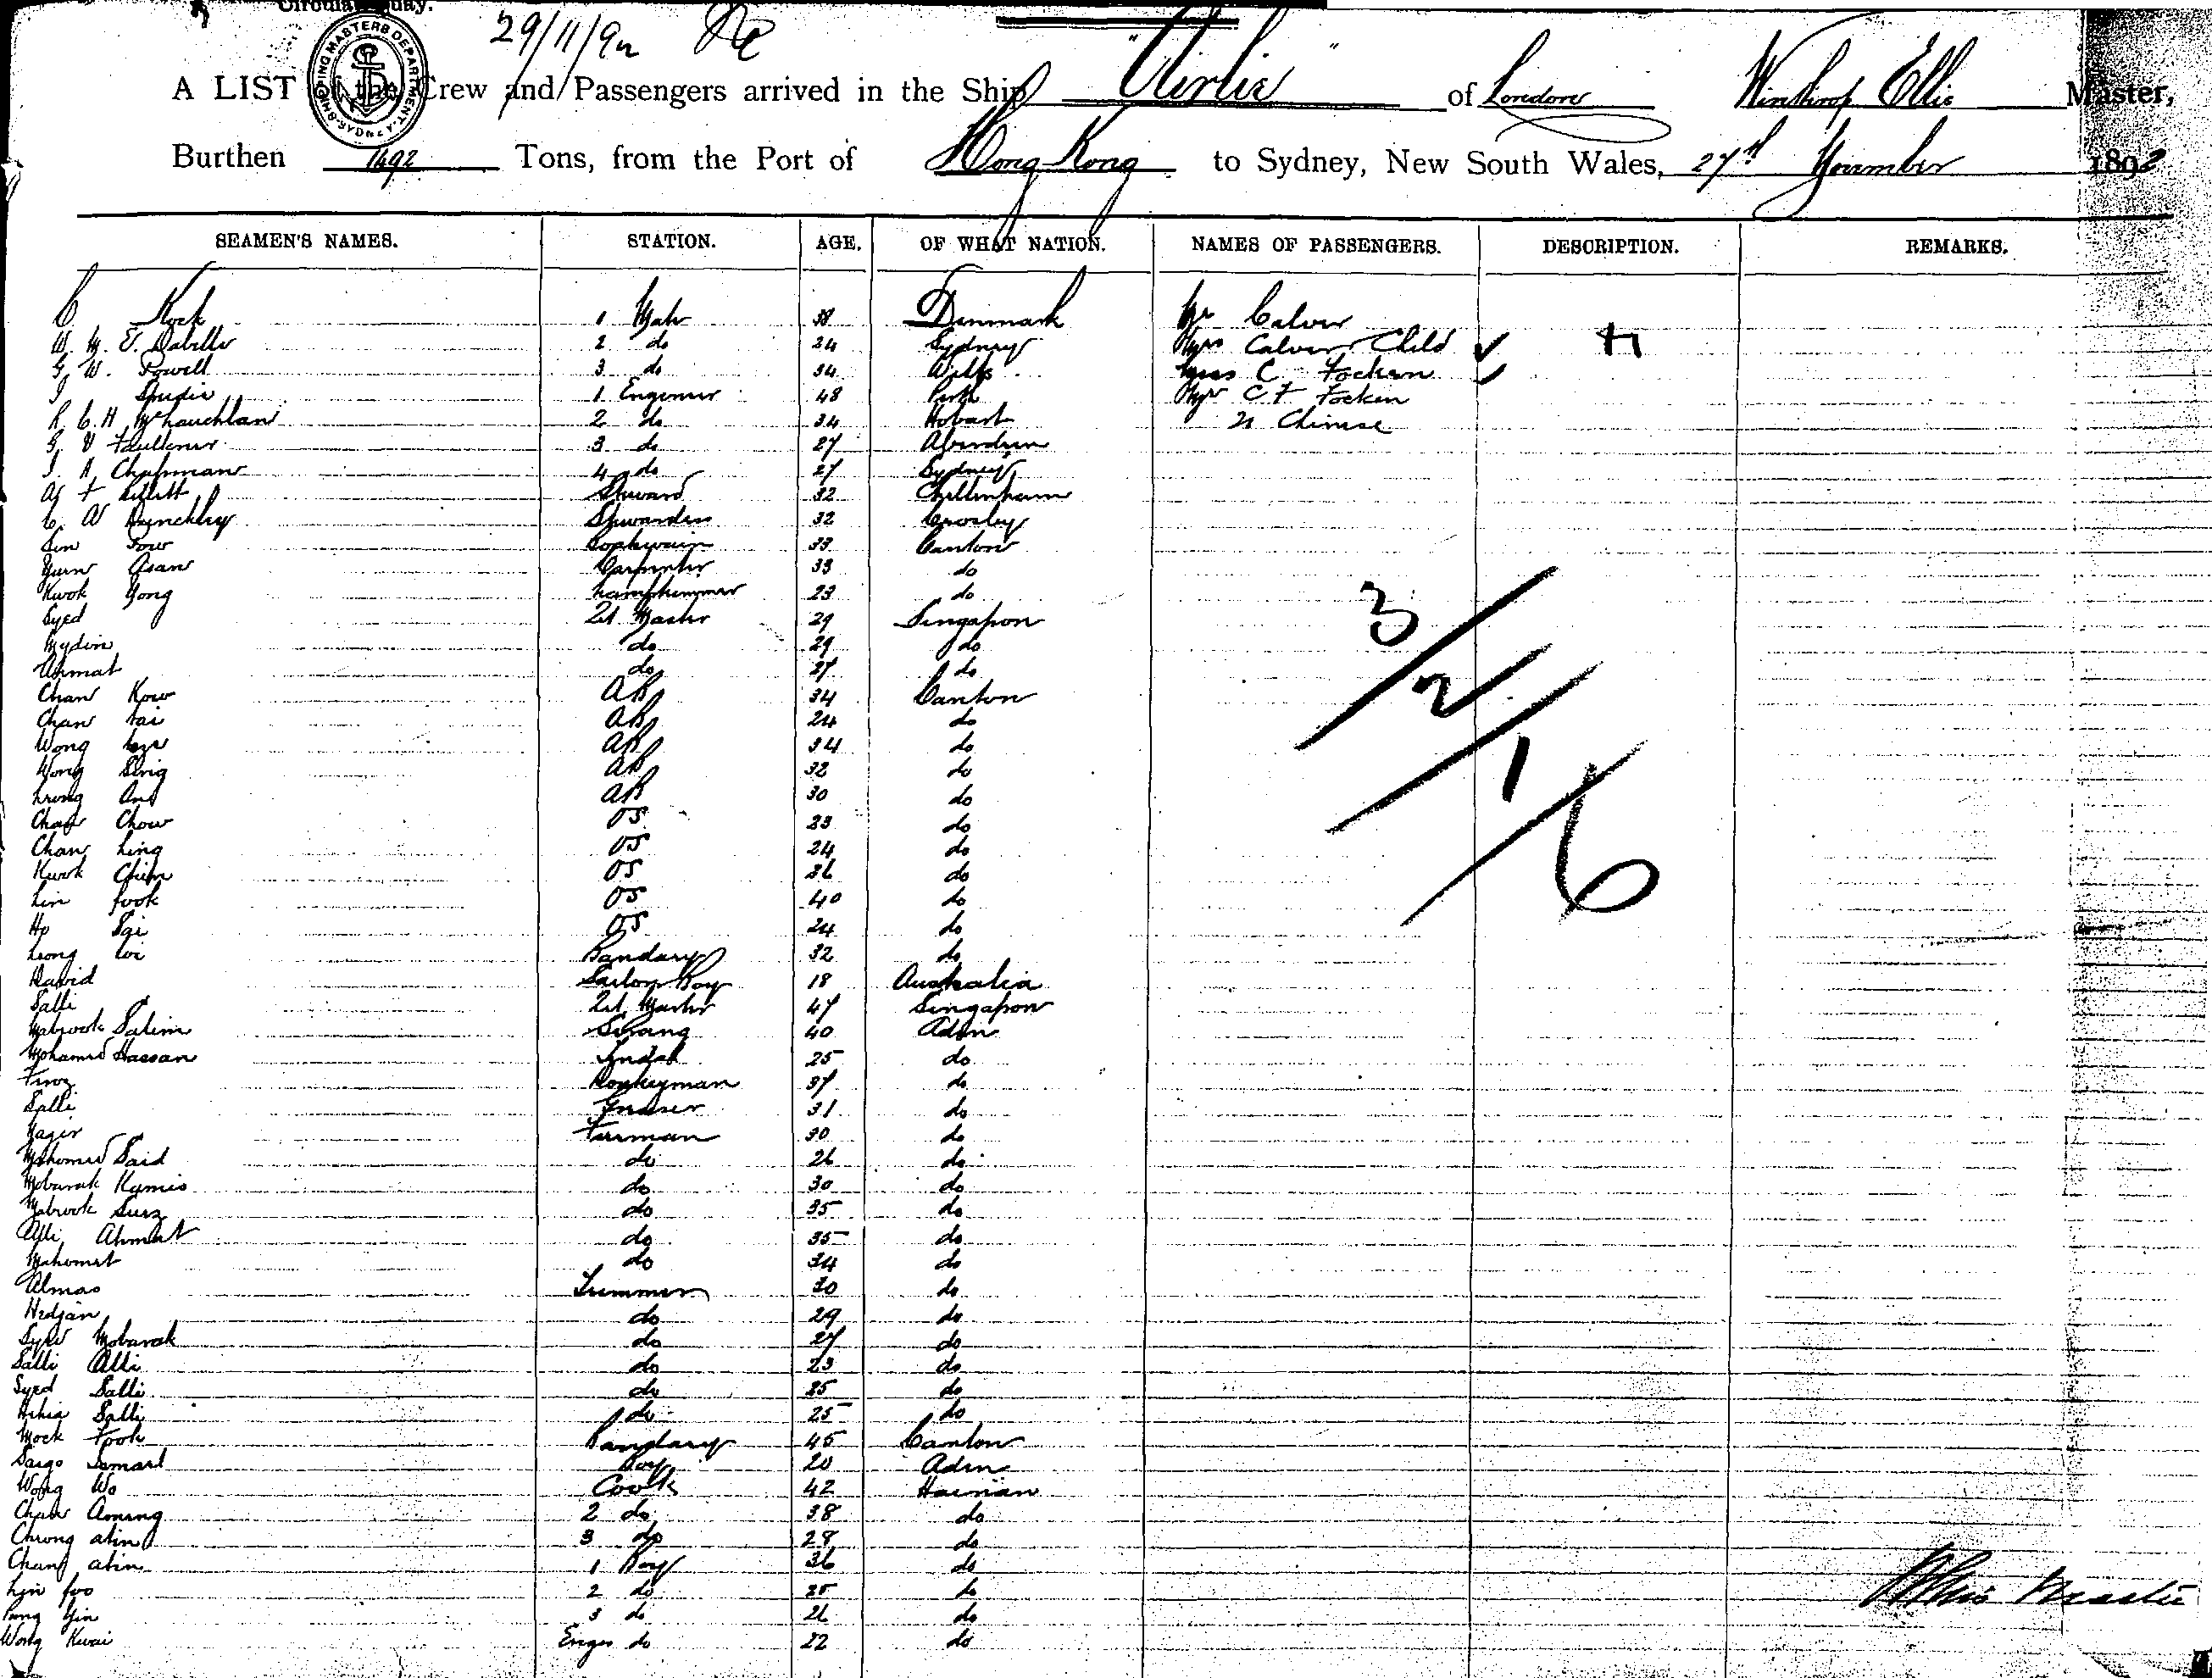 Circular Quay.
29/11/92
SHIPPING MASTERS DEPARTMENT
A LIST of the Crew and Passengers arrived in the Ship "Airlie" of London Winthrop Ellis Master,
Burthen 1492 Tons, from the Port of Hong Kong to Sydney, New South Wales, 27th November 1892
SEAMEN'S NAMES. STATION. AGE. OF WHAT NATION. NAMES OF PASSENGERS. DESCRIPTION. REMARKS.
C Kock 1 Mate 38 Denmark Mr Calver
2 do 24 Sydney Mrs Calver Child
G. W. Powell 3 do 34 Wilts Miss C Focken
1 Engineer 48 Perth Mr C F Focken
R C. H McLauchlan 2 do 34 Hobart 21 Chinese
G. V Faulkner 3 do 27 Aberdeen
J. A Chapman 4 do 27 Sydney
Steward 32 Cheltenham
Stewardess 32 Crosley
Boatswain 33 Canton
Yuen Asan Carpenter 33 do
Kwok Yong Lamptrimmer 23 do
Syed Qt Master 29 Singapore
Mydin do 29 do
Ahmat do 27 do
Chan Kow AB 34 Canton
Chan Tai AB 24 do
Wong AB 34 do
Wong Sing AB 32 do
AB 30 do
Chan Chow OS 23 do
Chan Ling OS 24 do
Kwok Chim OS 26 do
Lin fook OS 40 do
Ho Sai OS 24 do
Leong Loi Bandary 32 do
David Sailor Boy 18 Australia
Salli Qt Master 47 Singapore
Mabrook Salim Serang 40 Aden
Mohamed Hassan Tyndal 25 do
Firoz Donkeyman 37 do
Salli Greaser 31 do
Fireman 30 do
Mahomed Said do 26 do
Mobarak Kamis do 30 do
Mabrook do 35 do
Alli Ahmat do 35 do
Mahomet do 34 do
Almas Trimmer 30 do
Hedjan do 29 do
Syed Mobarak do 27 do
Salli Alli do 23 do
Syed Salli do 25 do
Salli do 25 do
Mock Fook Bandary 45 Canton
Ismail Boy 20 Aden
Wong Wo Cook 42 Hainan
Chan Aming 2 do 38 do
Cheong atin 3 do 29 do
Chang atin 1 Boy 36 do
Lin foo 2 do 25 do
Pang Yin 3 do 26 do
Wong Kwai Engrs do 22 do
3/2/1/6
WEllis Master